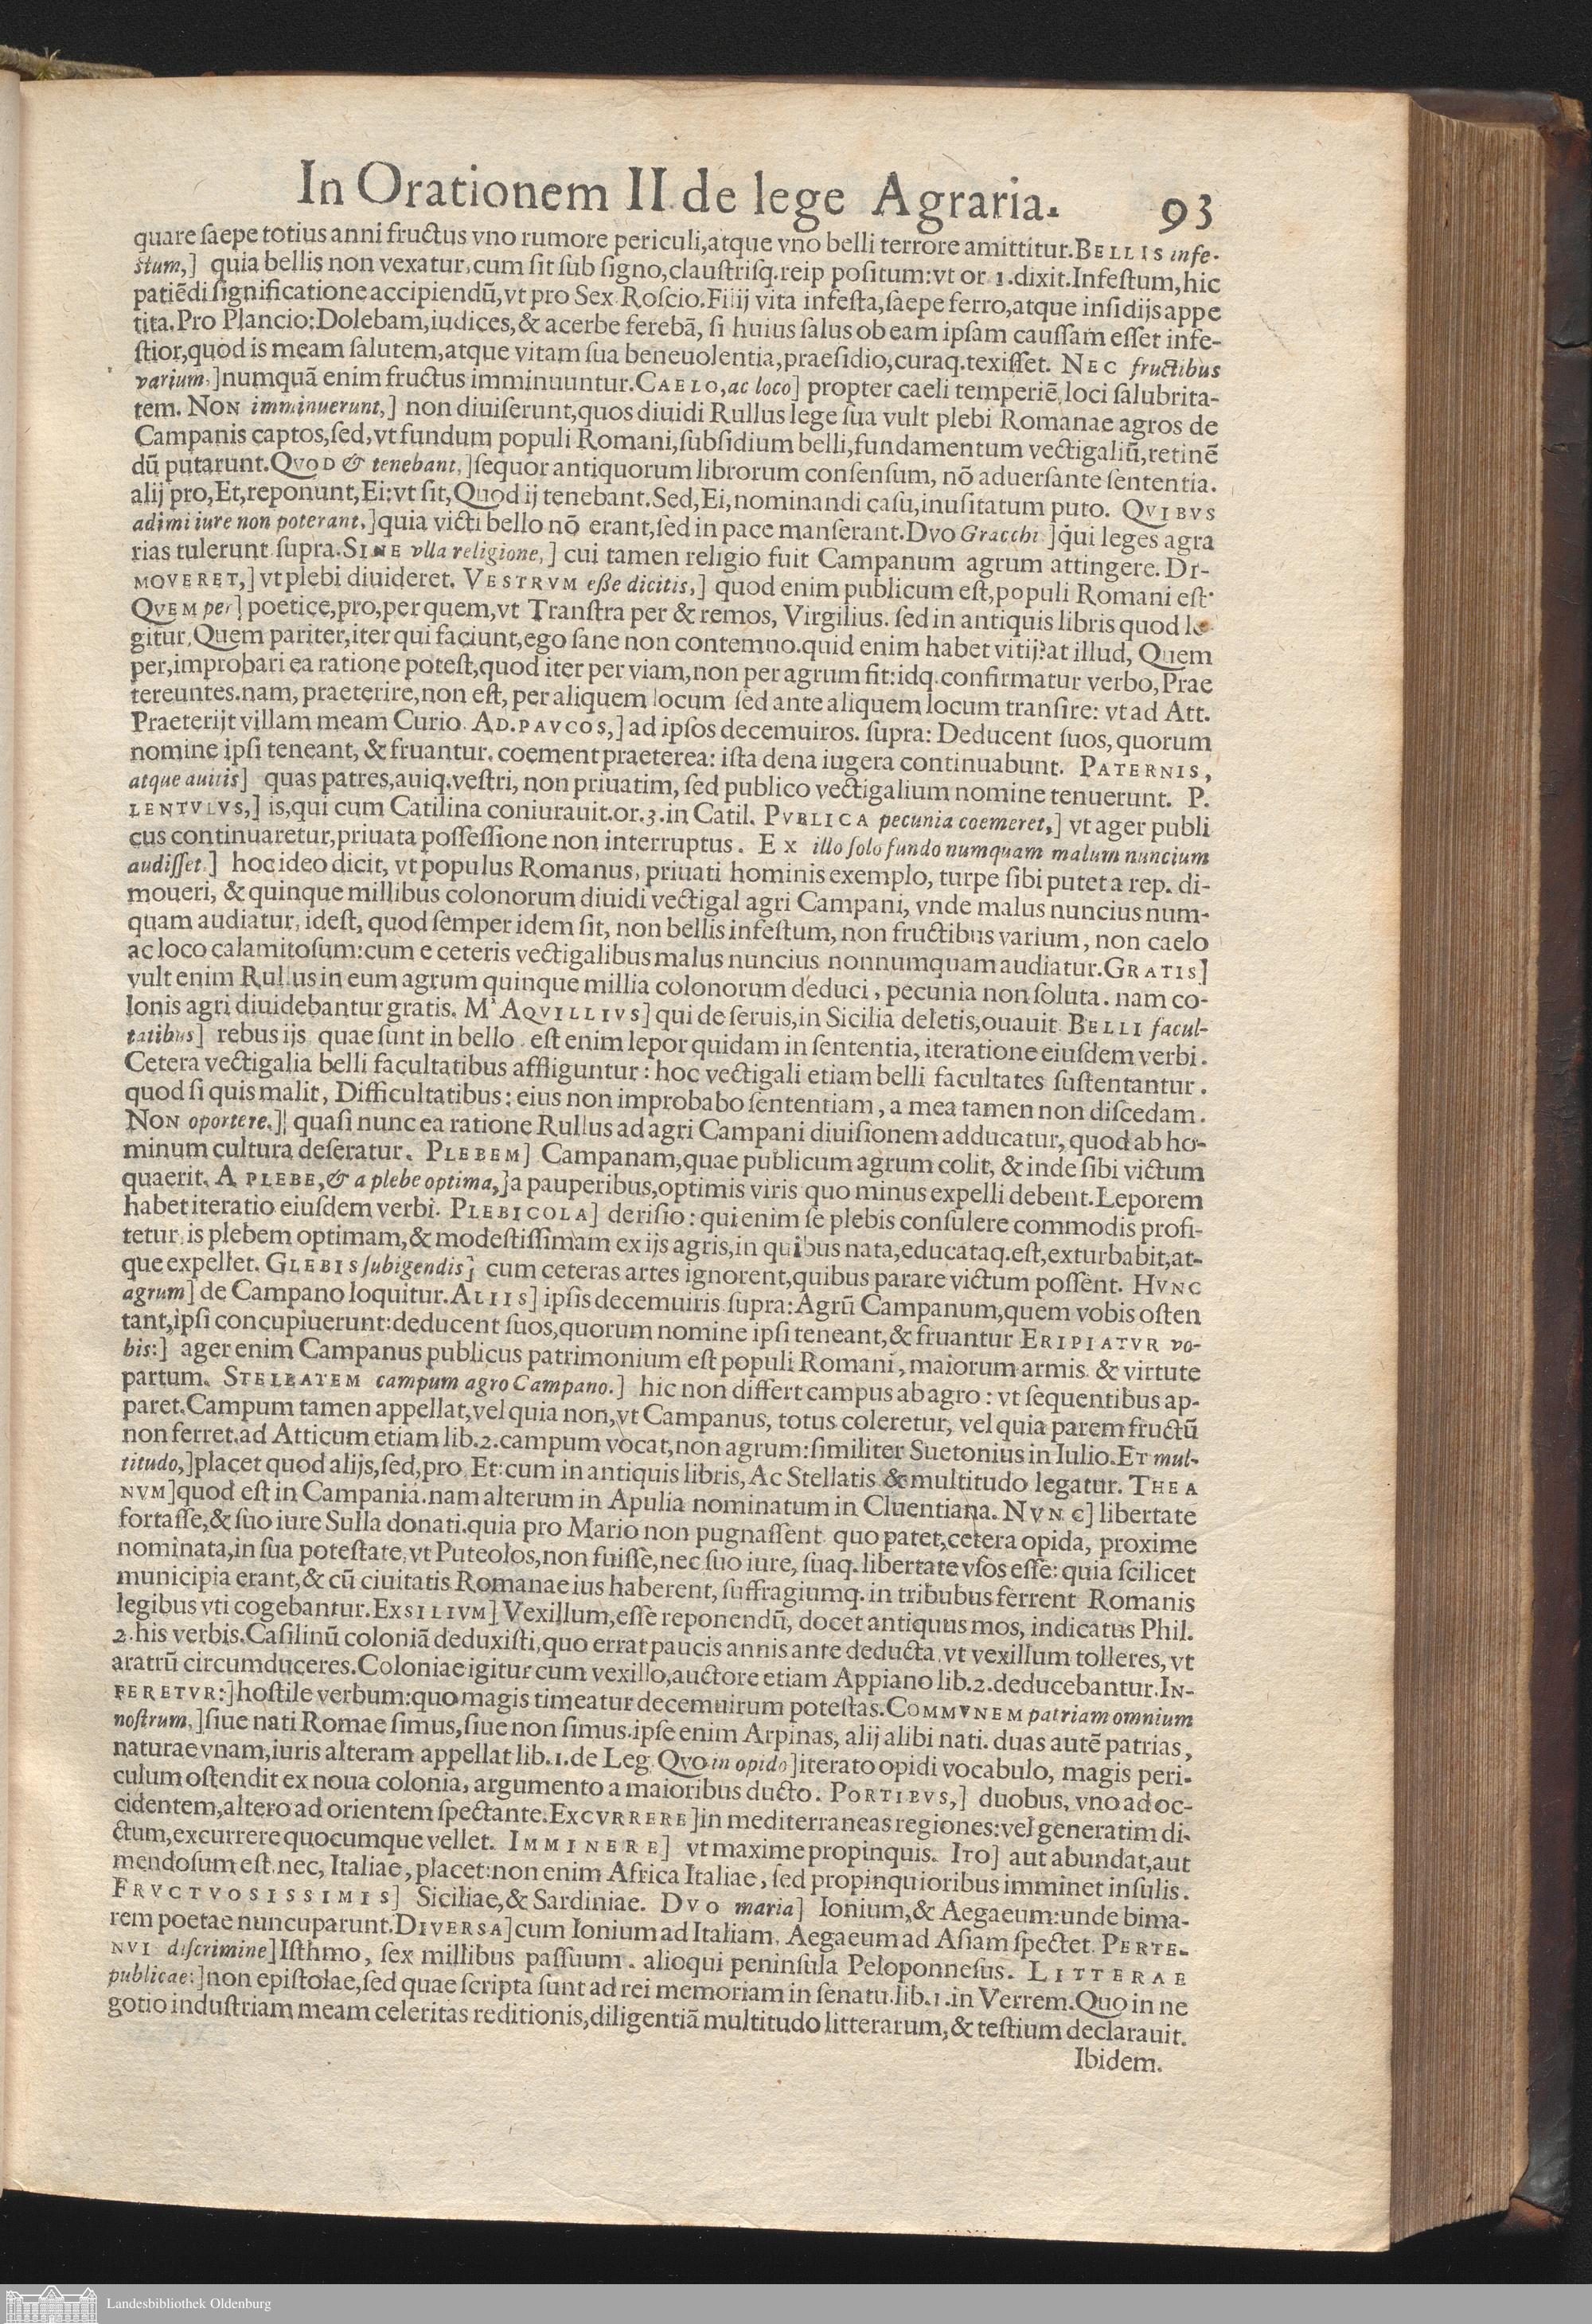 In Orationem II. de lege Agraria. 93
quare saepe totius anni fructus vno rumore periculi,atque vno belli terrore amittitur.BELLIS infe-
stum,] quia bellis non vexatur,cum sit sub signo,claustrisq.reip positum:vt or 1.dixit.Infestum,hic
patiẽdi significatione accipiendũ,vt pro Sex Roscio.Filij vita infesta,saepe ferro,atque insidijs appe
tita.Pro Plancio:Dolebam,iudices,& acerbe ferebã, si huius salus ob eam ipsam caussam esset infe-
stior,quod is meam salutem,atque vitam sua beneuolentia,praesidio,curaq.texisset. NEC fructibus
varium,]numquã enim fructus imminuuntur.CAELO,ac loco] propter caeli temperiẽ,loci salubrita-
tem. NON imminuerunt,] non diuiserunt,quos diuidi Rullus lege sua vult plebi Romanae agros de
Campanis captos,sed,vt fundum populi Romani,subsidium belli,fundamentum vectigaliũ,retinẽ
dũ putarunt.QVOD & tenebant,]sequor antiquorum librorum consensum, nõ aduersante sententia.
alij pro,Et,reponunt,Ei:vt sit,Quod ij tenebant.Sed,Ei,nominandi casu,inusitatum puto. QVIBVS
adimi iure non poterant,]quia victi bello nõ erant,sed in pace manserant.DVO Gracchi ]qui leges agra
rias tulerunt supra.SINE vlla religione,] cui tamen religio fuit Campanum agrum attingere. DI-
MOVERET,] vt plebi diuideret. VESTRVM esse dicitis,] quod enim publicum est,populi Romani est.
QVEM per] poetice,pro,per quem,vt Transtra per & remos, Virgilius. sed in antiquis libris quod le
gitur,Quem pariter,iter qui faciunt,ego sane non contemno.quid enim habet vitij?at illud, Quem
per,improbari ea ratione potest,quod iter per viam,non per agrum fit:idq.confirmatur verbo,Prae
tereuntes.nam, praeterire,non est, per aliquem locum sed ante aliquem locum transire: vt ad Att.
Praeterijt villam meam Curio. AD.PAVCOS,] ad ipsos decemuiros. supra: Deducent suos, quorum
nomine ipsi teneant, & fruantur. coement praeterea: ista dena iugera continuabunt. PATERNIS,
atque auitis] quas patres,auiq.vestri, non priuatim, sed publico vectigalium nomine tenuerunt. P.
LENTVLVS,] is,qui cum Catilina coniurauit.or.3.in Catil. PVBLICA pecunia coemeret,] vt ager publi
cus continuaretur,priuata possessione non interruptus. EX illo solo fundo numquam malum nuncium
audisset.] hoc ideo dicit, vt populus Romanus, priuati hominis exemplo, turpe sibi putet a rep. di-
moueri, & quinque millibus colonorum diuidi vectigal agri Campani, vnde malus nuncius num-
quam audiatur, idest, quod semper idem sit, non bellis infestum, non fructibus varium, non caelo
ac loco calamitosum:cum e ceteris vectigalibus malus nuncius nonnumquam audiatur.GRATIS]
vult enim Rullus in eum agrum quinque millia colonorum deduci, pecunia non soluta. nam co-
lonis agri diuidebantur gratis. M' AQVILLIVS] qui de seruis,in Sicilia deletis,ouauit. BELLI facul-
tatibus] rebus ijs quae sunt in bello. est enim lepor quidam in sententia, iteratione eiusdem verbi.
Cetera vectigalia belli facultatibus affliguntur: hoc vectigali etiam belli facultates sustentantur.
quod si quis malit, Difficultatibus: eius non improbabo sententiam, a mea tamen non discedam.
NON oportere.] quasi nunc ea ratione Rullus ad agri Campani diuisionem adducatur, quod ab ho-
minum cultura deseratur. PLEBEM] Campanam,quae publicum agrum colit, & inde sibi victum
quaerit. A PLEBE,& a plebe optima,]a pauperibus,optimis viris quo minus expelli debent.Leporem
habet iteratio eiusdem verbi. PLEBICOLA] derisio: qui enim se plebis consulere commodis profi-
tetur, is plebem optimam,& modestissimam ex ijs agris,in quibus nata,educataq.est,exturbabit,at-
que expellet. GLEBIS subigendis] cum ceteras artes ignorent,quibus parare victum possent. HVNC
agrum] de Campano loquitur.ALIIS] ipsis decemuiris supra:Agrũ Campanum,quem vobis osten
tant,ipsi concupiuerunt:deducent suos,quorum nomine ipsi teneant,& fruantur ERIPIATVR vo-
bis:] ager enim Campanus publicus patrimonium est populi Romani, maiorum armis & virtute
partum. STELLATEM campum agro Campano.] hic non differt campus ab agro: vt sequentibus ap-
paret.Campum tamen appellat,vel quia non,vt Campanus, totus coleretur, vel quia parem fructũ
non ferret.ad Atticum etiam lib.2.campum vocat,non agrum:similiter Suetonius in Iulio.ET mul-
titudo,]placet quod alijs,sed,pro Et:cum in antiquis libris, Ac Stellatis & multitudo legatur. THEA
NVM]quod est in Campania.nam alterum in Apulia nominatum in Cluentiana. NVNC] libertate
fortasse,& suo iure Sulla donati.quia pro Mario non pugnassent quo patet,cetera opida, proxime
nominata,in sua potestate,vt Puteolos,non fuisse,nec suo iure, suaq.libertate vsos esse: quia scilicet
municipia erant,& cũ ciuitatis Romanae ius haberent, suffragiumq.in tribubus ferrent Romanis
legibus vti cogebantur.EXSILIVM] Vexillum,esse reponendũ, docet antiquus mos, indicatus Phil.
2.his verbis.Casilinũ coloniã deduxisti,quo errat paucis annis ante deducta,vt vexillum tolleres, vt
aratrũ circumduceres.Coloniae igitur cum vexillo,auctore etiam Appiano lib.2.deducebantur.IN-
FERETVR:]hostile verbum:quo magis timeatur decemuirum potestas.COMMVNEM patriam omnium
nostrum,]siue nati Romae simus,siue non simus.ipse enim Arpinas, alij alibi nati. duas autẽ patrias,
naturae vnam,iuris alteram appellat lib.1.de Leg. QVO in opido]iterato opidi vocabulo, magis peri-
culum ostendit ex noua colonia, argumento a maioribus ducto. PORTIBVS,] duobus, vno ad oc-
cidentem,altero ad orientem spectante.EXCVRRERE]in mediterraneas regiones:vel generatim di-
ctum,excurrere quocumque vellet. IMMINERE] vt maxime propinquis. ITO] aut abundat,aut
mendosum est.nec, Italiae, placet:non enim Africa Italiae, sed propinquioribus imminet insulis.
FRVCTVOSISSIMIS] Siciliae,& Sardiniae. DVO maria] Ionium,& Aegaeum:unde bima-
rem poetae nuncuparunt.DIVERSA]cum Ionium ad Italiam, Aegaeum ad Asiam spectet. PERTE-
NVI discrimine]Isthmo, sex millibus passuum. alioqui peninsula Peloponnesus. LITTERAE
publicae:]non epistolae,sed quae scripta sunt ad rei memoriam in senatu.lib.1.in Verrem.Quo in ne
gotio industriam meam celeritas reditionis,diligentiã multitudo litterarum,& testium declarauit.
Ibidem.
Landesbibliothek Oldenburg